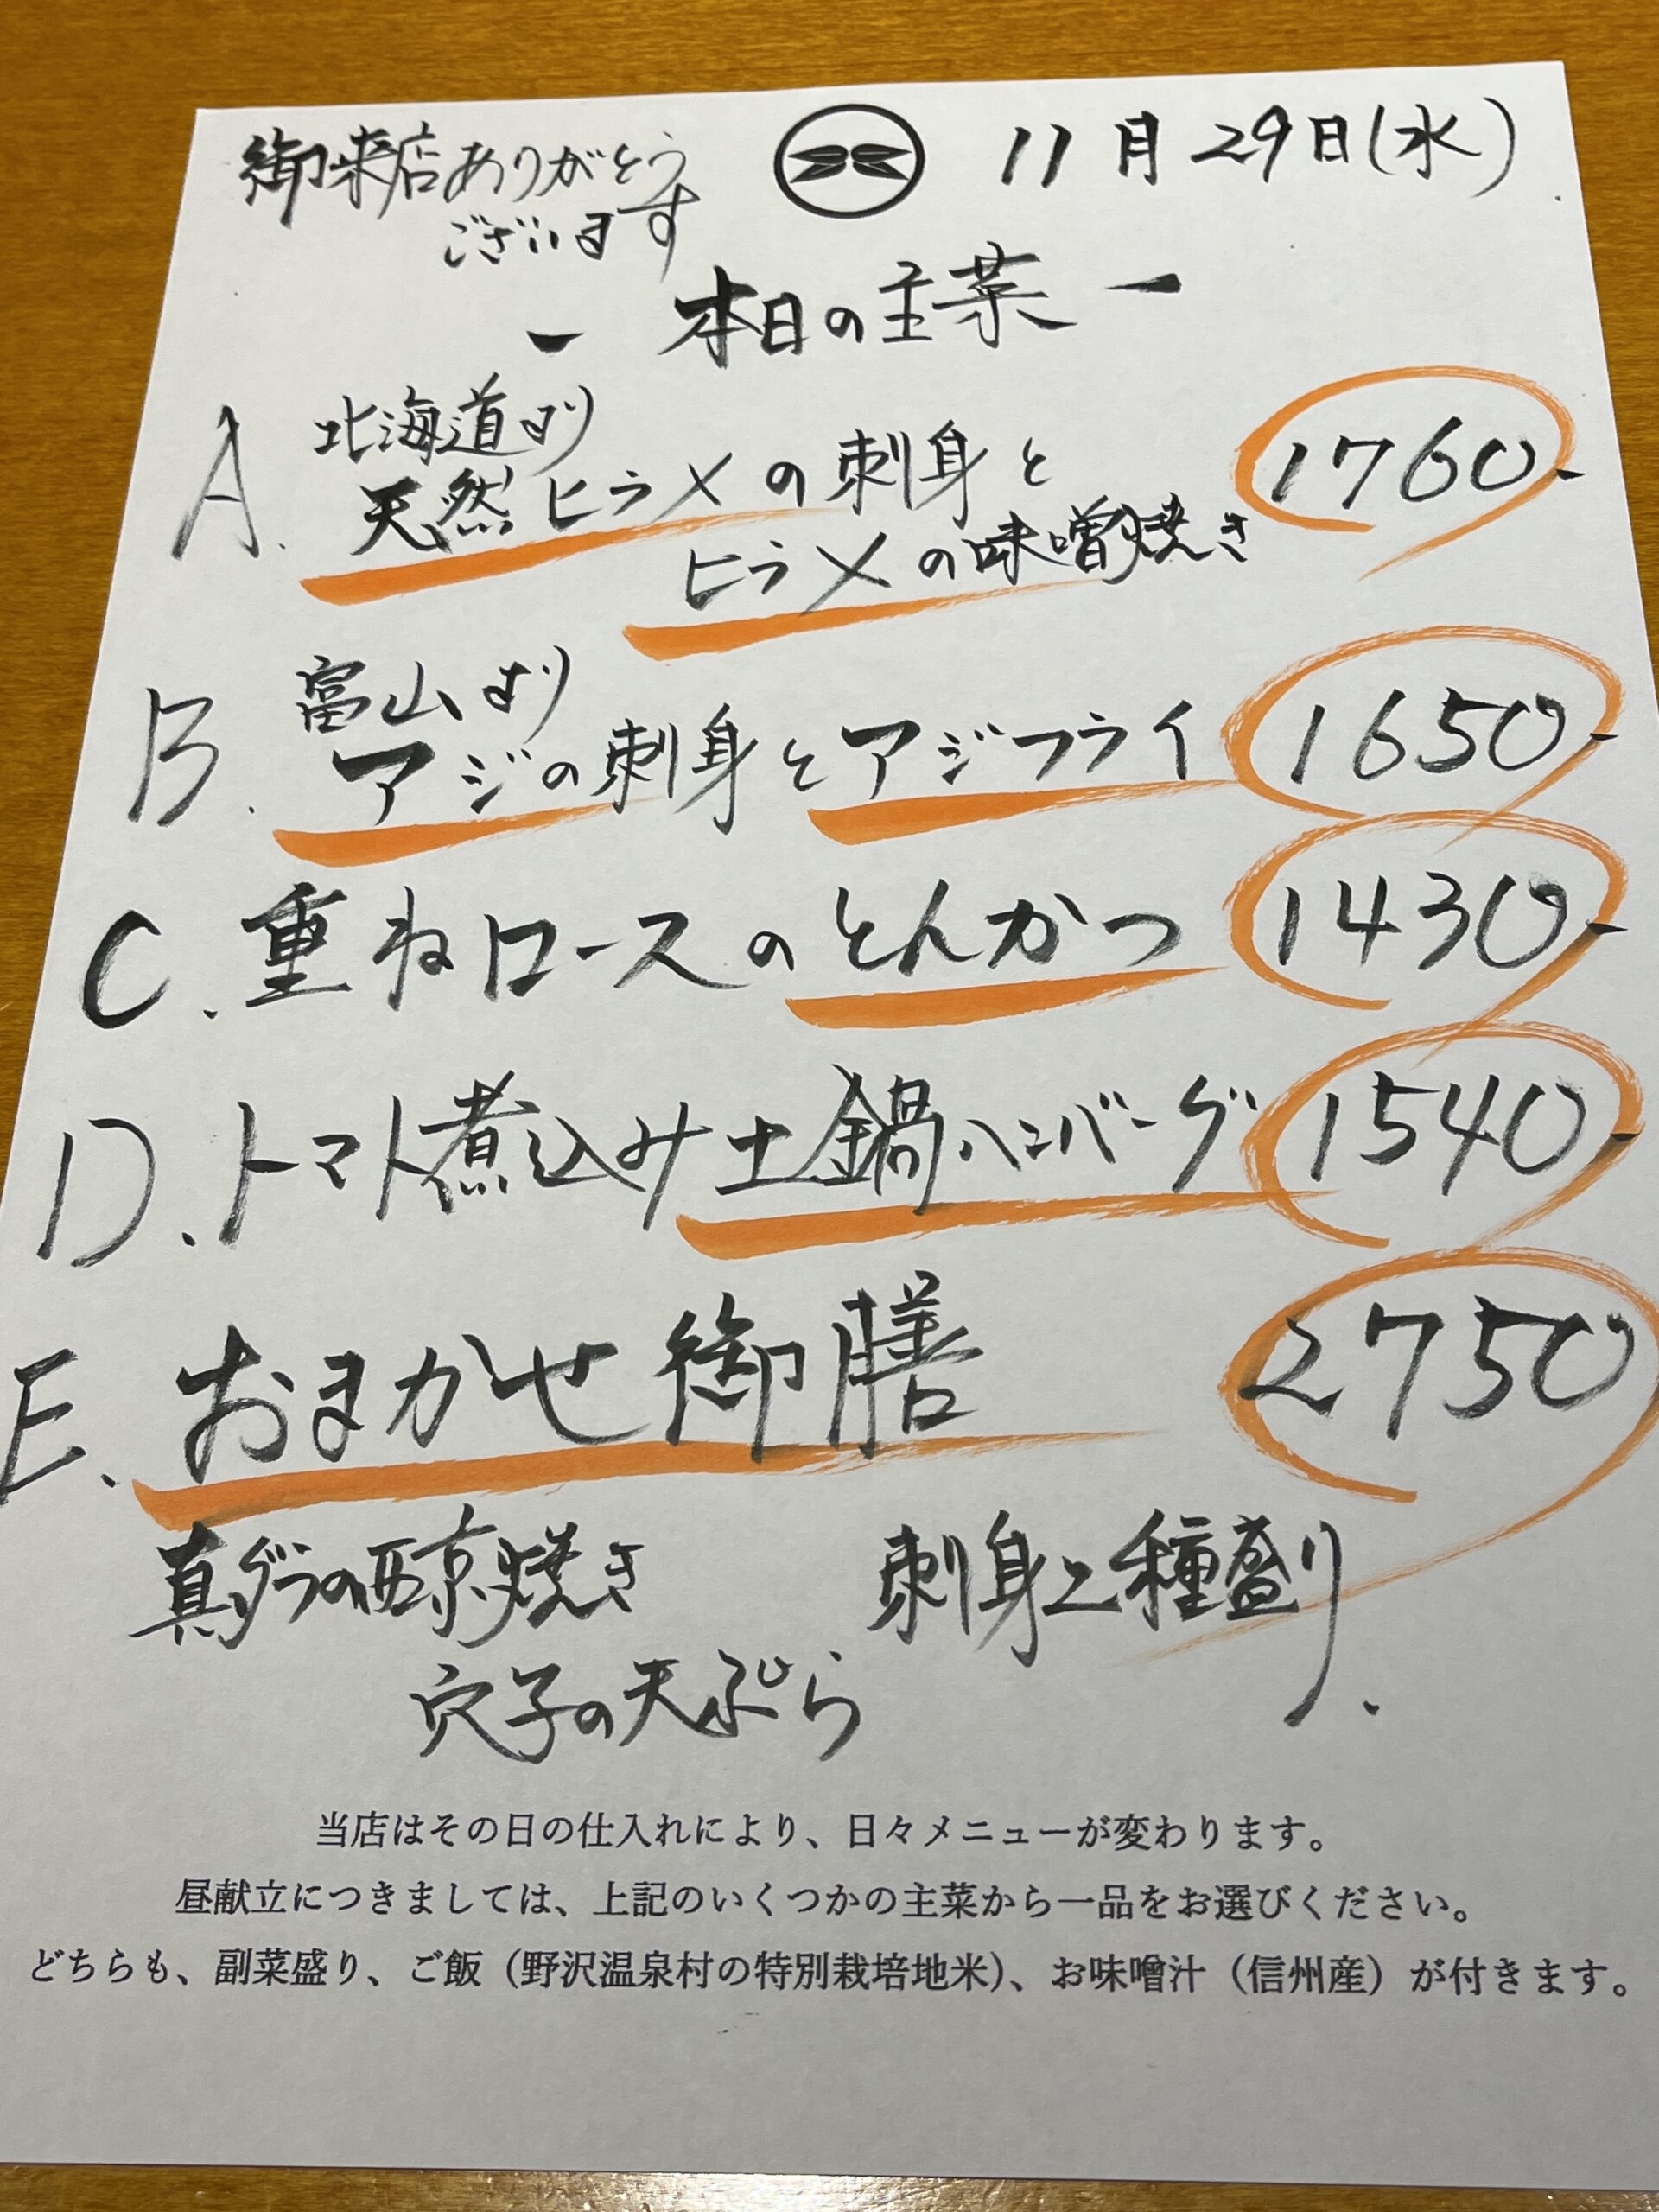 御来店ありがとう
ございます
11月29日(水)
ー 本日の主菜 ー
A. 北海道より
天然ヒラメの刺身と
ヒラメの味噌焼き
1760-
B. 富山より
アジの刺身とアジフライ 1650-
C. 重ねロースのとんかつ 1430-
D. トマト煮込み土鍋ハンバーグ 1540-
E. おまかせ御膳 2750
真ダラの西京焼き 刺身二種盛り
穴子の天ぷら
当店はその日の仕入れにより、日々メニューが変わります。
昼献立につきましては、上記のいくつかの主菜から一品をお選びください。
どちらも、副菜盛り、ご飯（野沢温泉村の特別栽培地米）、お味噌汁（信州産）が付きます。